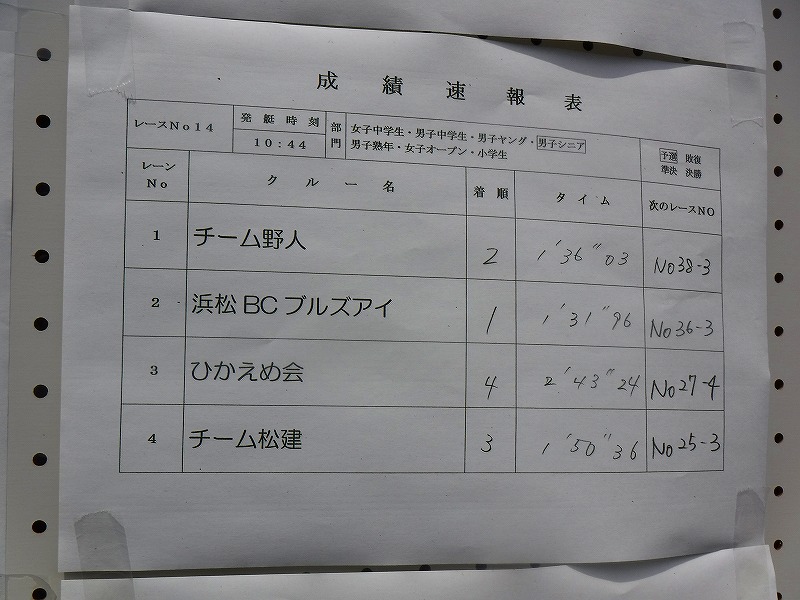 成績速報表
レースNo14 発艇時刻 10:44 部門 女子中学生・男子中学生・男子ヤング・男子シニア
男子熟年・女子オープン・小学生
予選 敗復
準決 決勝
レーンNo クルー名 着順 タイム 次のレースNO
1 チーム野人 2 1'36"03 No38-3
2 浜松BCブルズアイ 1 1'31"96 No36-3
3 ひかえめ会 4 2'43"24 No27-4
4 チーム松建 3 1'50"36 No25-3